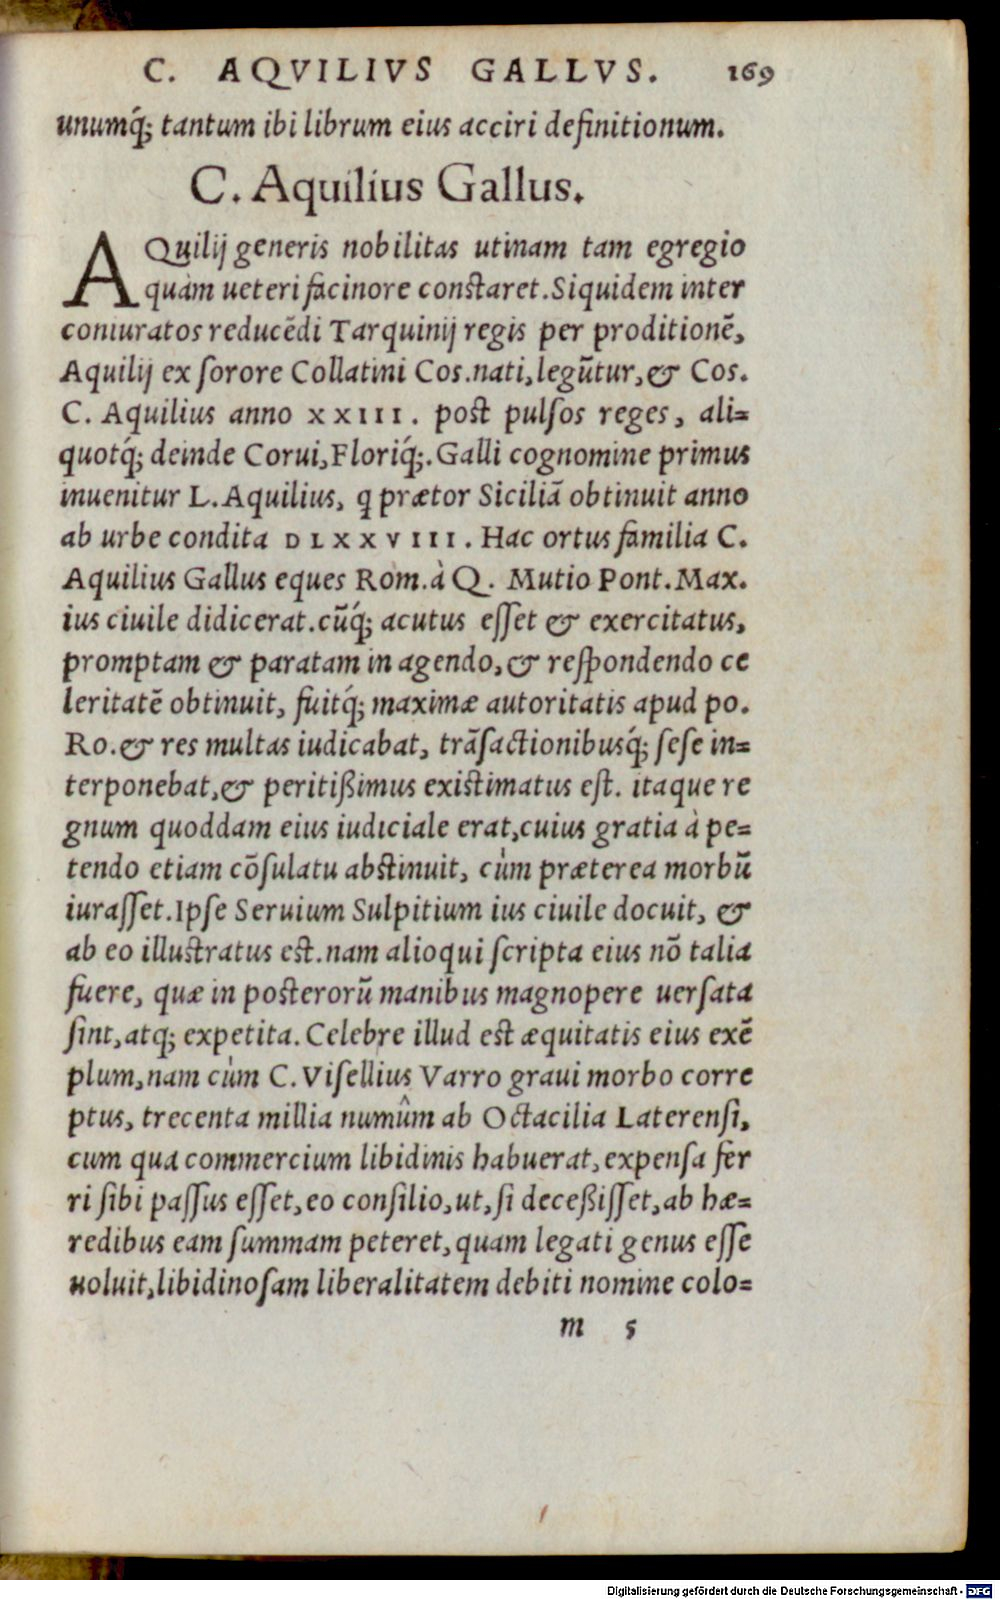 C. AQVILIVS GALLVS. 169
unumq́; tantum ibi librum eius acciri definitionum.
C. Aquilius Gallus.
AQuilij generis nobilitas utinam tam egregio
quàm ueteri facinore constaret. Siquidem inter
coniuratos reducẽdi Tarquinij regis per proditionẽ,
Aquilij ex sorore Collatini Cos. nati, legũtur, & Cos.
C. Aquilius anno XXIII. post pulsos reges, ali=
quotq́; deinde Corui, Floriq́;. Galli cognomine primus
inuenitur L. Aquilius, q prætor Siciliã obtinuit anno
ab urbe condita DLXXVIII. Hac ortus familia C.
Aquilius Gallus eques Rom. à Q. Mutio Pont. Max.
ius ciuile didicerat. cũq́; acutus esset & exercitatus,
promptam & paratam in agendo, & respondendo ce
leritatẽ obtinuit, fuitq́; maximæ autoritatis apud po.
Ro. & res multas iudicabat, trãsactionibusq́; sese in=
terponebat, & peritißimus existimatus est. itaque re
gnum quoddam eius iudiciale erat, cuius gratia à pe=
tendo etiam cõsulatu abstinuit, cùm præterea morbũ
iurasset. Ipse Seruium Sulpitium ius ciuile docuit, &
ab eo illustratus est. nam alioqui scripta eius nõ talia
fuere, quæ in posterorũ manibus magnopere uersata
sint, atq; expetita. Celebre illud est æquitatis eius exẽ
plum, nam cùm C. Visellius Varro graui morbo corre
ptus, trecenta millia numûm ab Octacilia Laterensi,
cum qua commercium libidinis habuerat, expensa fer
ri sibi passus esset, eo consilio, ut, si deceßisset, ab hæ=
redibus eam summam peteret, quam legati genus esse
uoluit, libidinosam liberalitatem debiti nomine colo=
m 5
Digitalisierung gefördert durch die Deutsche Forschungsgemeinschaft - DFG